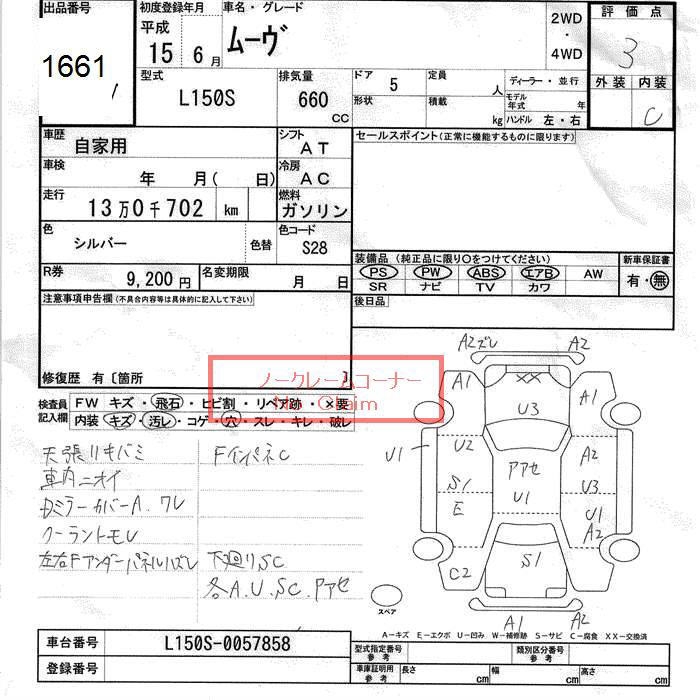 出品番号
1661
初度登録年月
平成
15年6月
車名・グレード
ムーヴ
2WD
・
4WD
評価点
3
外装 内装
C
型式
L150S
排気量
660
CC
ドア 5
定員 人
ディーラー・並行
形状
積載 kg
モデル年式 年
ハンドル 左・右
車歴
自家用
シフト
AT
セールスポイント(正常に機能するものに限ります)
車検
年 月( 日)
冷房
AC
走行
13万0千702 km
燃料
ガソリン
色
シルバー
色替
色コード
S28
装備品(純正品に限り○をつけてください)
PS PW ABS エアB AW
SR ナビ TV カワ
新車保証書
有・無
R券
9,200円
名変期限
月 日
後日品
注意事項申告欄(不具合内容等は具体的に記入して下さい)
修復歴 有〔箇所 〕
ノークレームコーナー
No Claim
検査員記入欄
FW キズ・飛石・ヒビ割・リペア跡・×要
内装 キズ・汚レ・コゲ・穴・スレ・キレ・破レ
天張リキバミ
車内ニオイ
Dミラーカバー A. ワレ
クーラントモレ
左右Fアンダーパネルハズレ
FインパネC
下廻りSC
各A.U.SC.アアセ
A2ズレ A2
A1 XX A1
U3
U1 U2 アアセ A2
S1 U1 U3
E U1
A2
C2 S1
A1 A2
スペア
A−キズ E−エクボ U−凹み W−補修跡 S−サビ C−腐食 XX−交換済
車台番号
L150S-0057858
登録番号
型式指定番号
参考
類別区分番号
参考
車庫証明用
参考
長さ cm
幅 cm
高さ cm